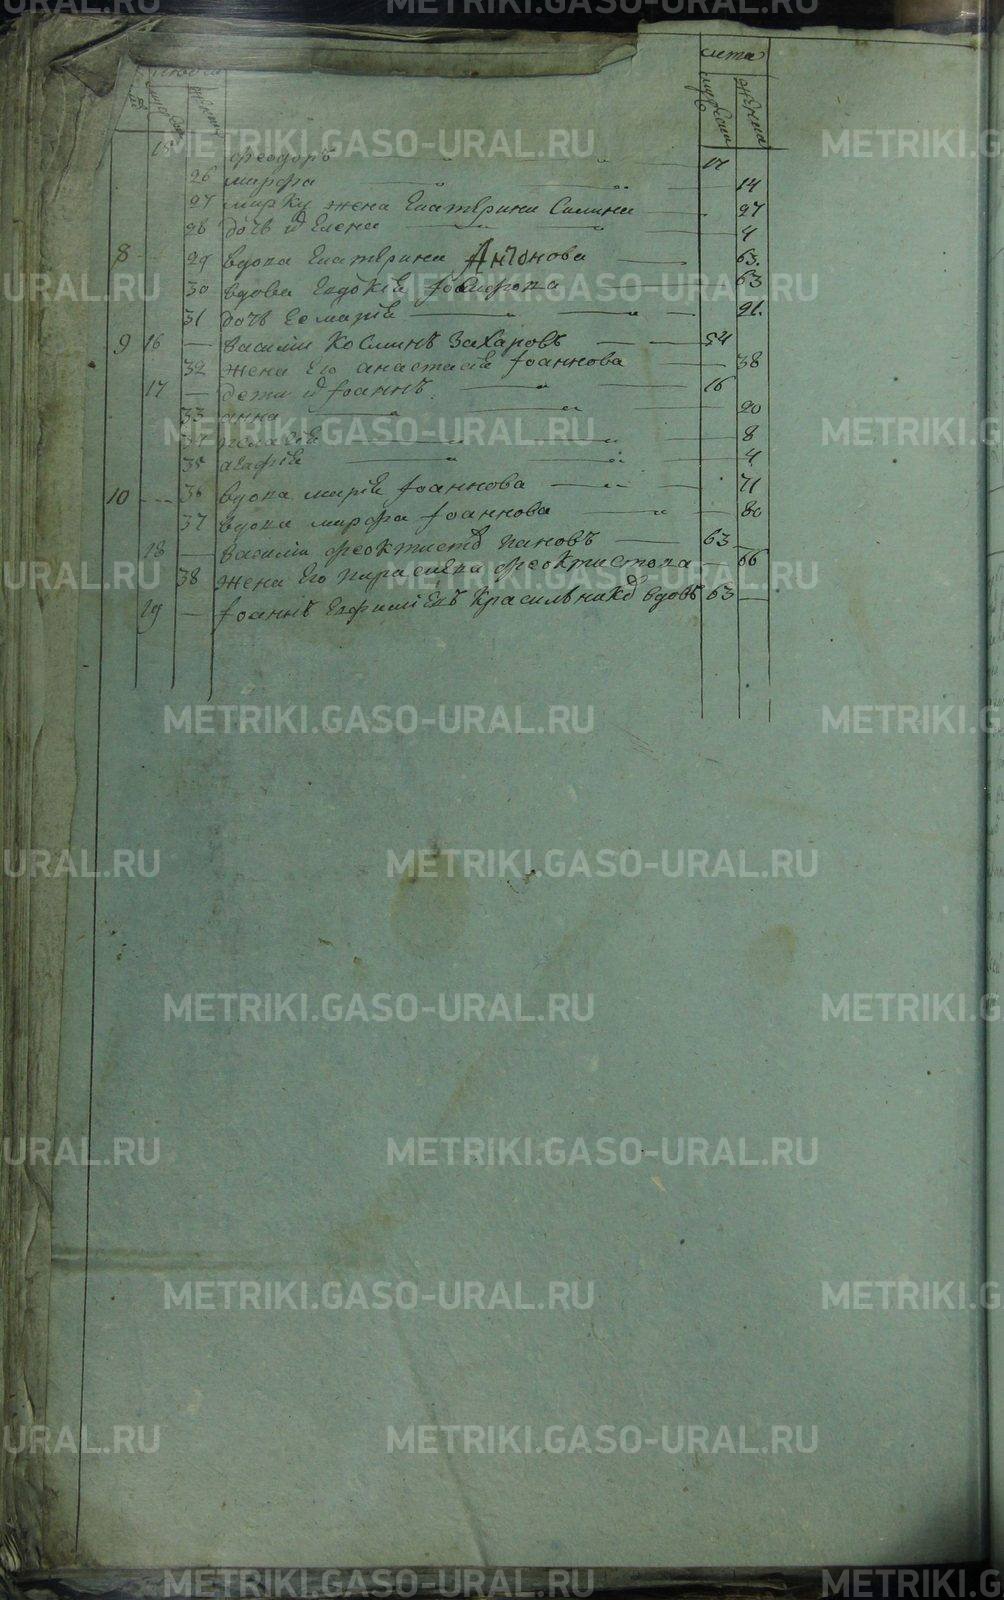 лета
мужска
женска
18 Феодоръ — " — " — 17
26 марфа — " — " — 14
27 марку жена Екатерина Силина — 27
28 дочь и Елена — " — " — 4
8 — 29 вдова Екатерина Антонова — 63.
30 вдова Евдокіа — 63
31 дочь Ее маріа — " — " — 21.
9 16 — василіи Козминъ Захаровъ — — 54
32 жена Его анастасіа Іоаннова — 38
17 — дети и Іоаннъ — " — 16
33 анна — " — " — 20
34 пелагіа — " — " — 8
35 агафіа — " — " — 4
10 --- 36 вдова маріа Іоаннова — " — 71
37 вдова марфа Іоаннова — " — 80
18 — василіи Феоктистов Пановъ — 63 —
38 жена Его параскева Феоктистова — 66
19 — Іоаннъ Евфиміевъ Красильников вдовъ 63 —
METRIKI.GASO-URAL.RU